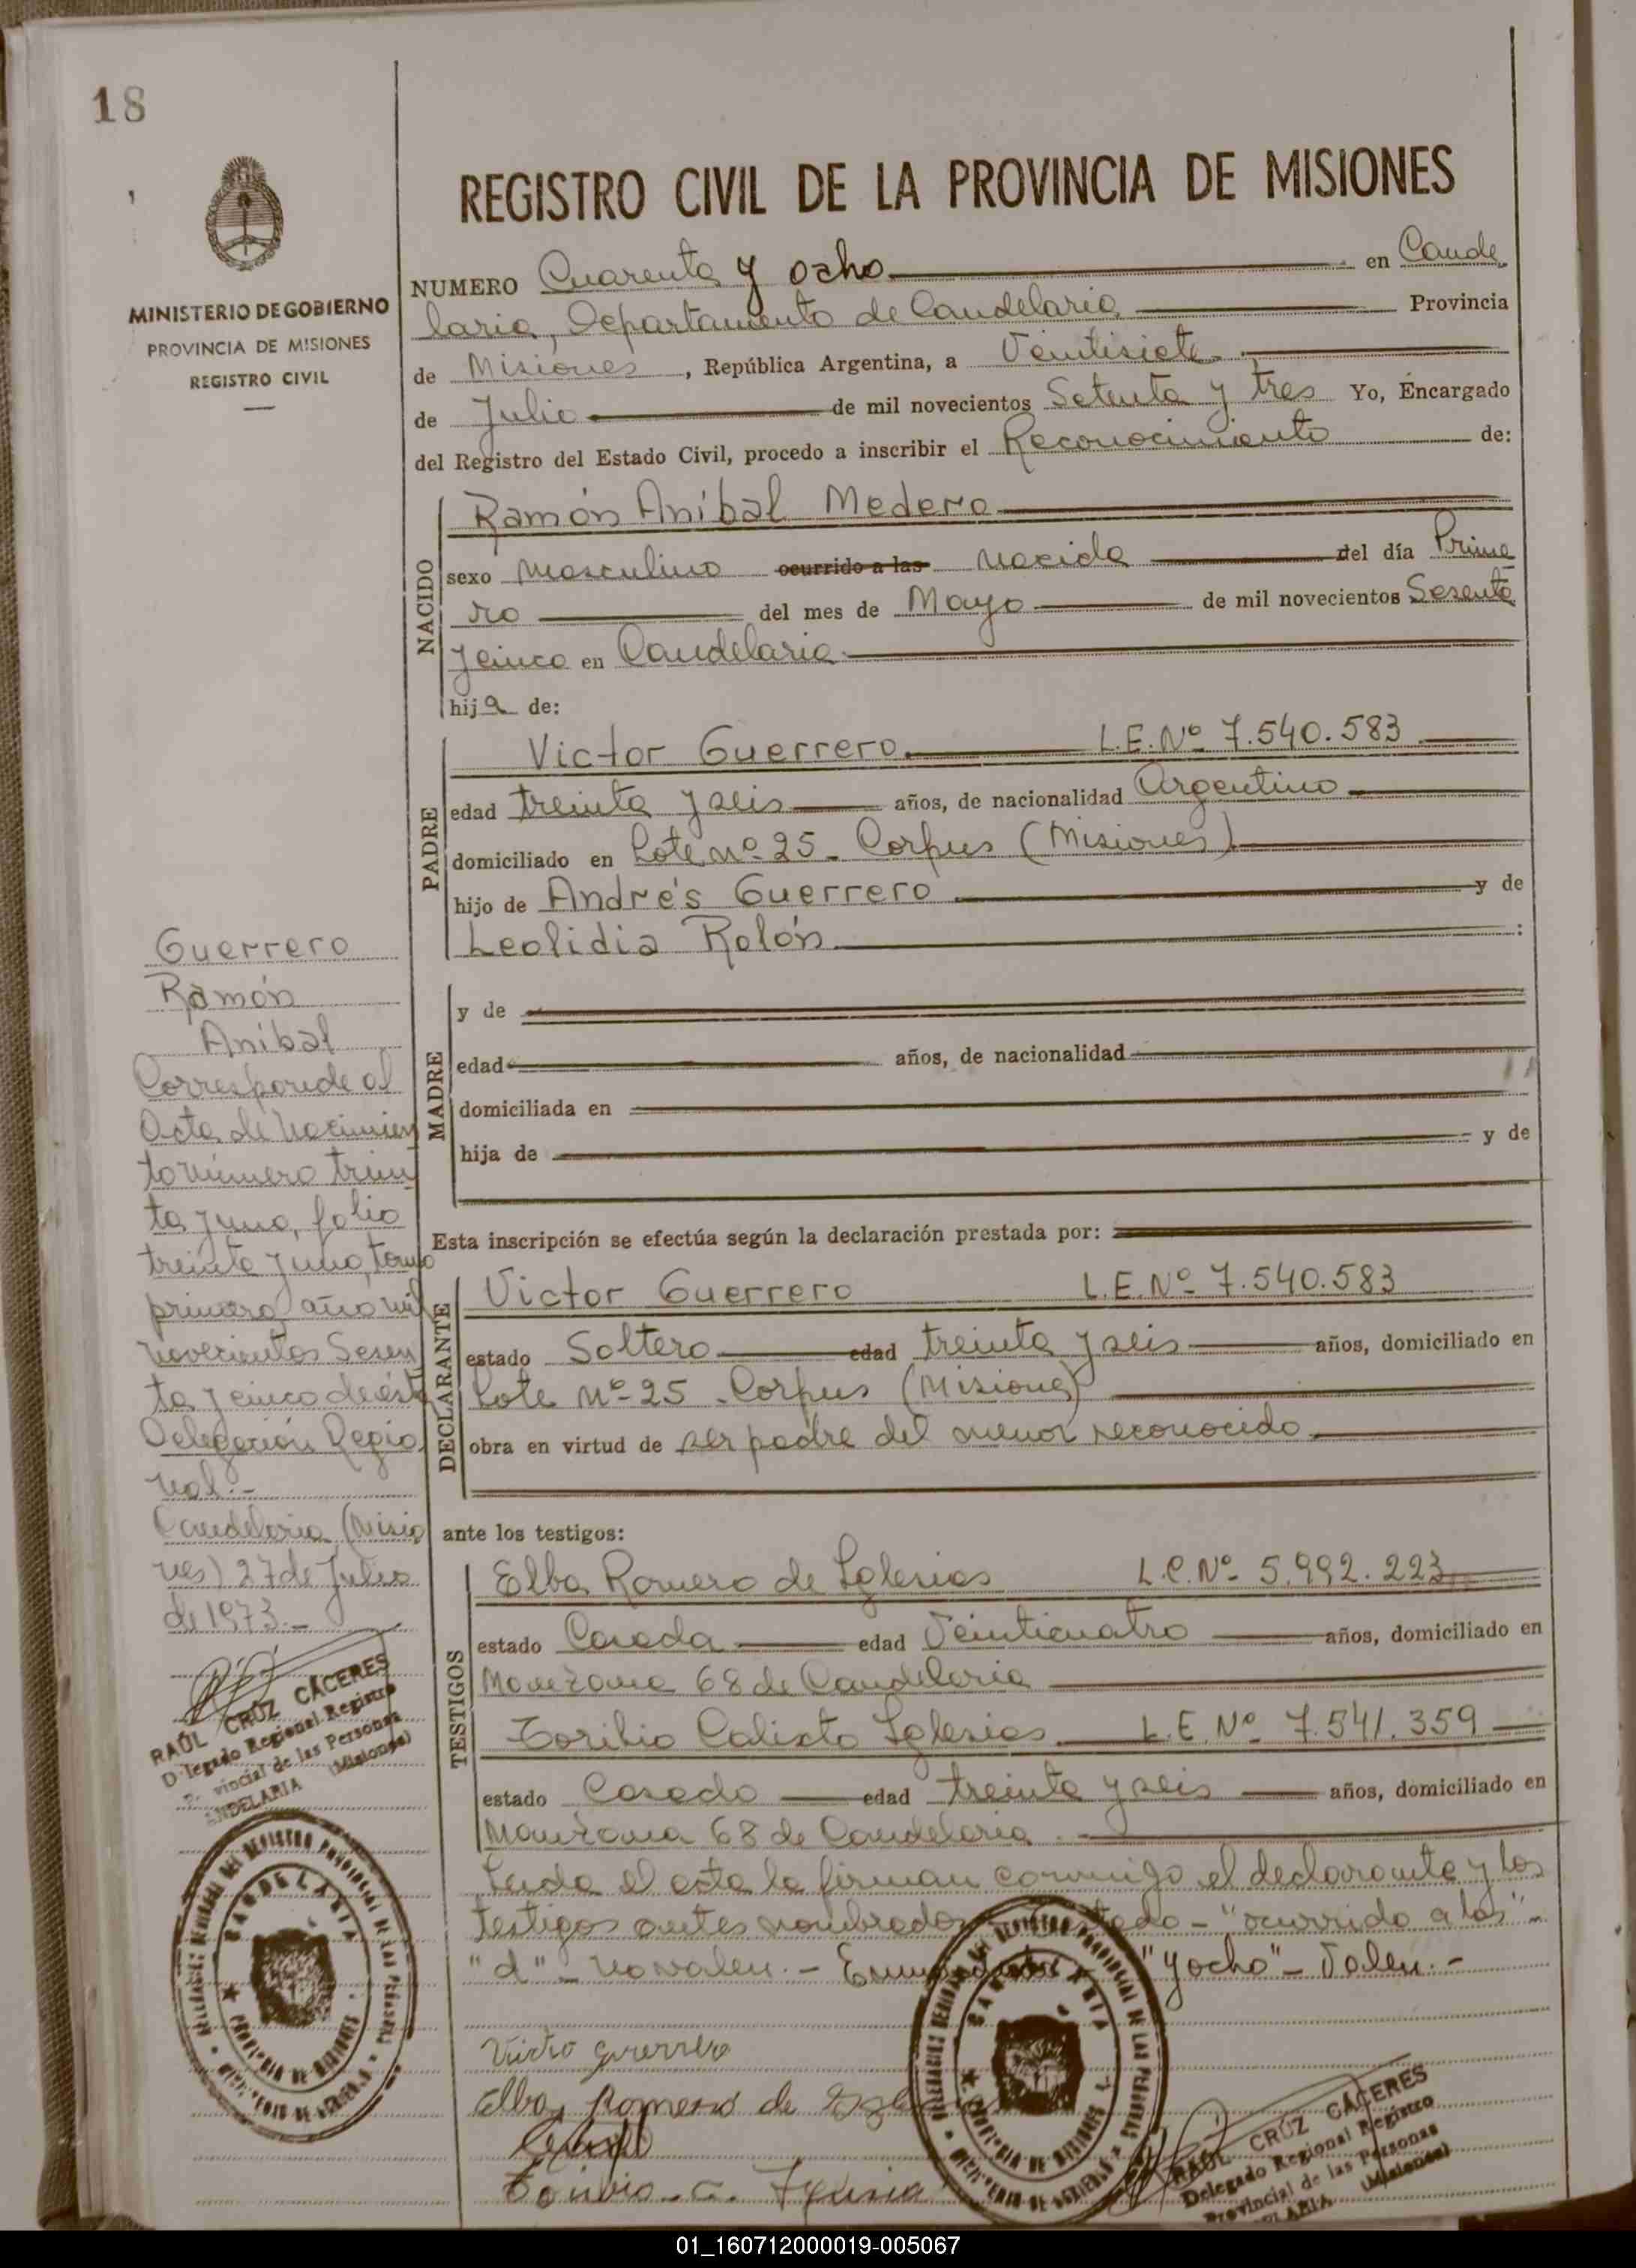 18
MINISTERIO DE GOBIERNO
PROVINCIA DE MISIONES
REGISTRO CIVIL
REGISTRO CIVIL DE LA PROVINCIA DE MISIONES
NUMERO Cuarenta y ocho en Cande
laria, Departamento de Candelaria Provincia
de Misiones, República Argentina, a Veintisiete
de Julio de mil novecientos Setenta y tres Yo, Encargado
del Registro del Estado Civil, procedo a inscribir el Reconocimiento de:
NACIDO
Ramón Aníbal Medero
sexo masculino ocurrido a las nacido del día Prime
ro del mes de Mayo de mil novecientos Sesenta
y cinco en Candelaria
hijo de:
PADRE
Victor Guerrero L.E.Nº 7.540.583
edad treinta y seis años, de nacionalidad Argentino
domiciliado en Lote nº 25 - Corpus (Misiones)
hijo de Andrés Guerrero y de
Leolidia Rolón :
MADRE
y de
edad años, de nacionalidad
domiciliada en
hija de y de
Esta inscripción se efectúa según la declaración prestada por:
DECLARANTE
Victor Guerrero L.E.Nº 7.540.583
estado Soltero edad treinta y seis años, domiciliado en
Lote Nº 25 - Corpus (Misiones)
obra en virtud de ser padre del menor reconocido
ante los testigos:
TESTIGOS
Elba Romero de Iglesias L.C.Nº 5.992.223
estado Casada edad Veinticuatro años, domiciliado en
Manzana 68 de Candelaria
Toribio Calixto Iglesias L.E.Nº 7.541.359
estado Casado edad treinta y seis años, domiciliado en
Manzana 68 de Candelaria
Leida el acta la firman conmigo el declarante y los
testigos antes nombrados - "ocurrido a las" -
"d" - no valen. - "y ocho" - Valen. -
Guerrero
Ramón
Aníbal
Corresponde al
Acta de Nacimien
to número trein
ta y uno, folio
treinta y uno, tomo
primero, año mil
novecientos Sesen
ta y cinco de ésta
Delegación Regio
nal.-
Candelaria (Misio
nes) 27 de Julio
de 1973.-
RAÚL CRUZ CÁCERES
Delegado Regional Registro
Provincial de las Personas
CANDELARIA (Misiones)
CANDELARIA
PROVINCIA DE MISIONES
Elba Romero de
Toribio C. Iglesia
CANDELARIA
PROVINCIA DE MISIONES
RAÚL CRUZ CÁCERES
Delegado Regional Registro
Provincial de las Personas
(Misiones)
01_160712000019-005067